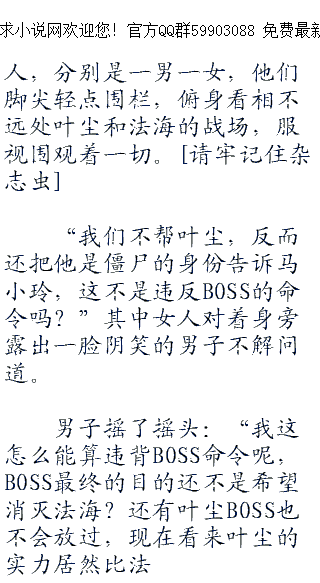 求小说网欢迎您! 官方QQ群59903088 免费最新
人，分别是一男一女，他们
脚尖轻点围栏，俯身看相不
远处叶尘和法海的战场，服
视围观着一切。[请牢记住杂
志虫]
“我们不帮叶尘，反而
还把他是僵尸的身份告诉马
小玲，这不是违反BOSS的命
令吗？”其中女人对着身旁
露出一脸阴笑的男子不解问
道。
男子摇了摇头：“我这
怎么能算违背BOSS命令呢，
BOSS最终的目的还不是希望
消灭法海？还有叶尘BOSS也
不会放过，现在看来叶尘的
实力居然比法